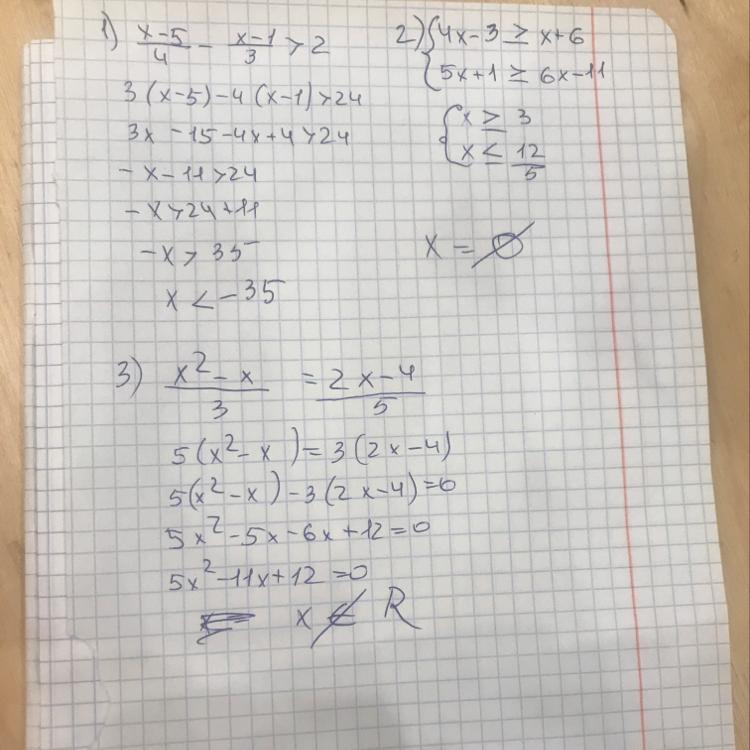 1) (x-5)/4 - (x-1)/3 > 2
3(x-5)-4(x-1)>24
3x-15-4x+4>24
-x-11>24
-x>24+11
-x>35
x<-35
2) { 4x-3≥x+6
{ 5x+1≥6x-11
{ x≥3
{ x≤12/5
x=∅
3) (x²-x)/3 = (2x-4)/5
5(x²-x)=3(2x-4)
5(x²-x)-3(2x-4)=0
5x²-5x-6x+12=0
5x²-11x+12=0
x∉R